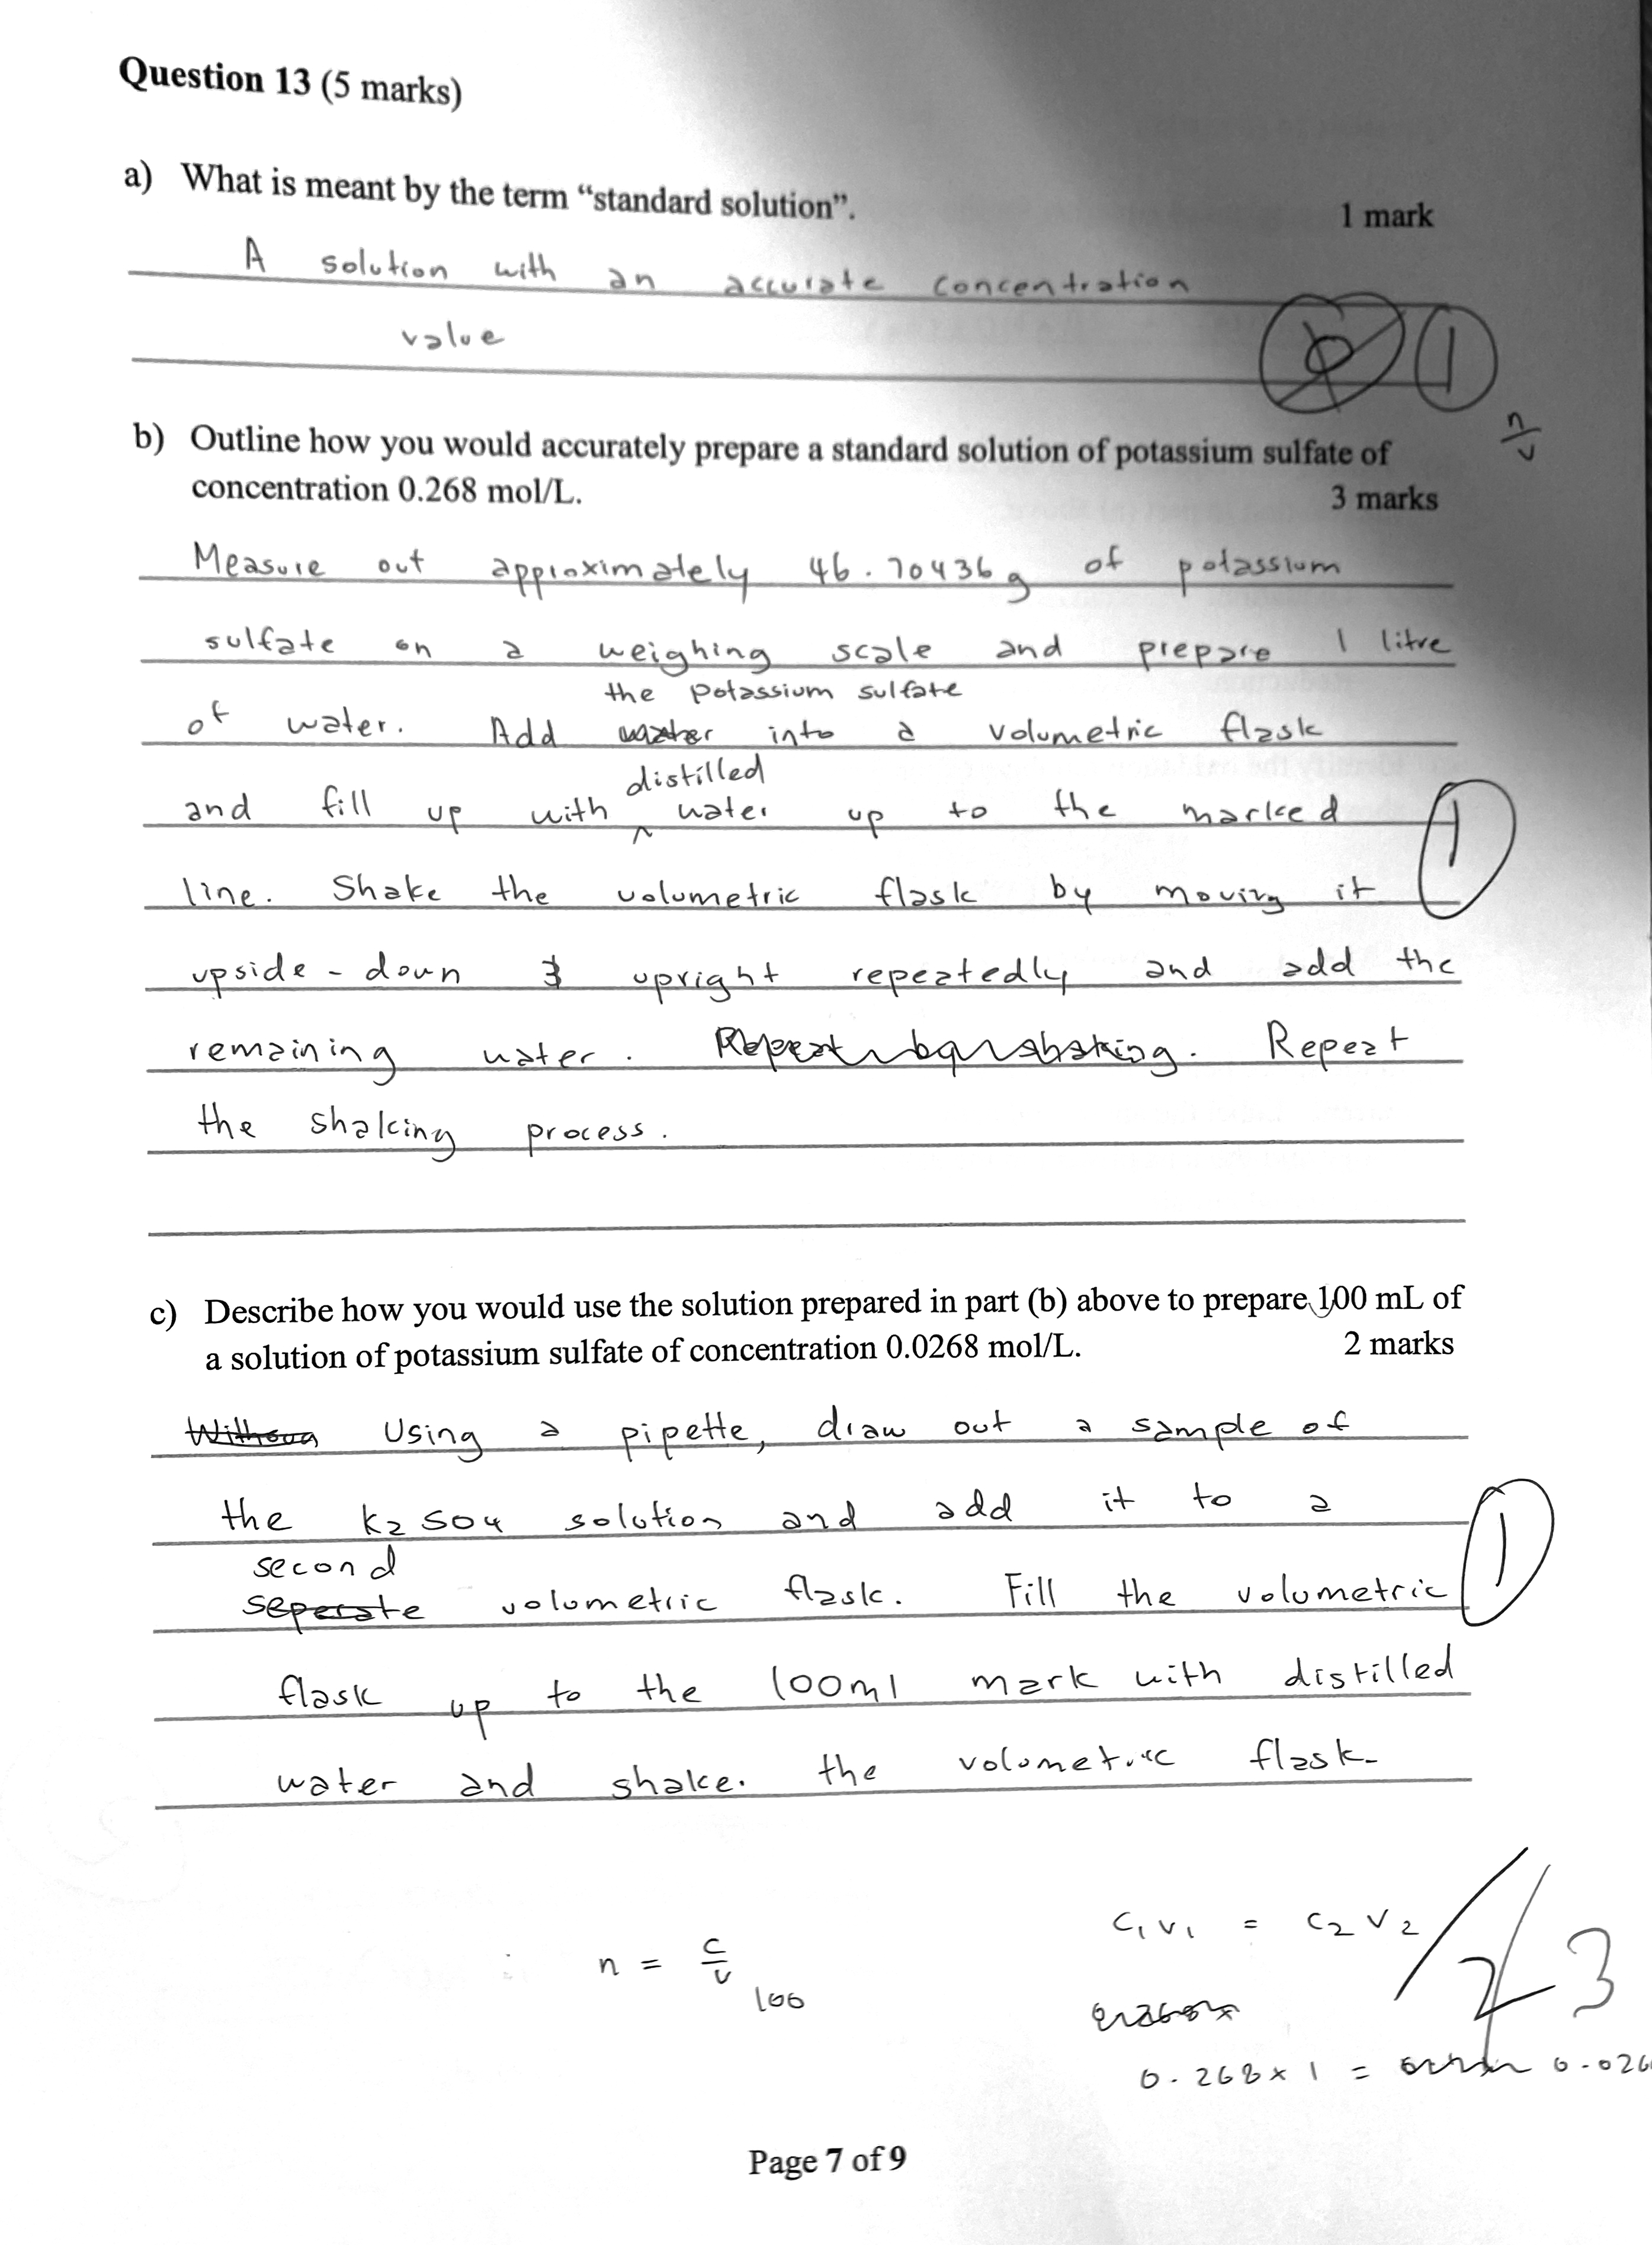 Question 13 (5 marks)
a) What is meant by the term “standard solution”.
1 mark
A solution with an accurate concentration
value
1
n/v
b) Outline how you would accurately prepare a standard solution of potassium sulfate of
concentration 0.268 mol/L.
3 marks
Measure out approximately 46.70436g of potassium
sulfate on a weighing scale and prepare 1 litre
the potassium sulfate
of water. Add water into a volumetric flask
distilled
and fill up with water up to the marked
1
line. Shake the volumetric flask by moving it
upside-down & upright repeatedly and add the
remaining water. Repeat by shaking. Repeat
the shaking process.
c) Describe how you would use the solution prepared in part (b) above to prepare 100 mL of
a solution of potassium sulfate of concentration 0.0268 mol/L.
2 marks
Using a pipette, draw out a sample of
the K2SO4 solution and add it to a
second
seperate volumetric flask. Fill the volumetric
1
flask up to the 100ml mark with distilled
water and shake. the volumetric flask.
c1v1 = c2v2
n = c/v
100
2 3
0.268x1 = 0.026
Page 7 of 9